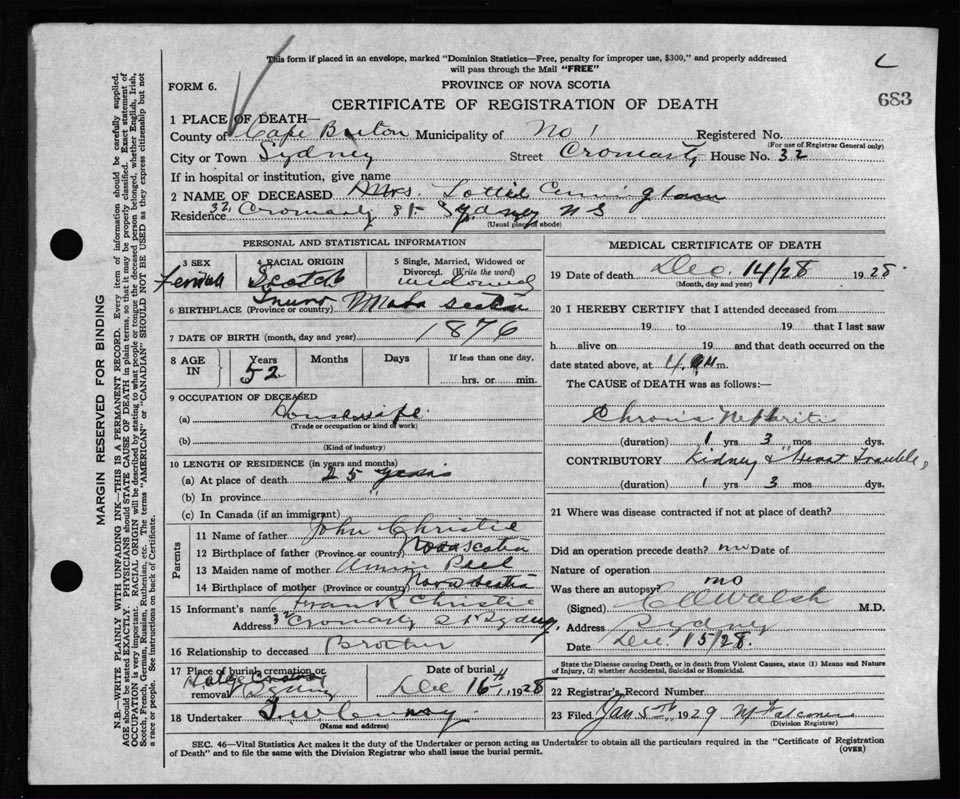 This form if placed in an envelope, marked "Dominion Statistics—Free, penalty for improper use, $300," and properly addressed
will pass through the Mail "FREE"
L
683
FORM 6.
PROVINCE OF NOVA SCOTIA
CERTIFICATE OF REGISTRATION OF DEATH
1 PLACE OF DEATH—
County of Cape Breton Municipality of No 1 Registered No.
(For use of Registrar General only)
City or Town Sydney Street Cromarty House No. 32
If in hospital or institution, give name
2 NAME OF DECEASED Mrs. Lottie Cunningham
Residence 32 Cromarty St Sydney N S
(Usual place of abode)
PERSONAL AND STATISTICAL INFORMATION
3 SEX
Female
4 RACIAL ORIGIN
Scotch
5 Single, Married, Widowed or
Divorced. (Write the word)
6 BIRTHPLACE (Province or country) Truro Nova Scotia
7 DATE OF BIRTH (month, day and year) 1876
8 AGE IN
Years
52
Months
Days
If less than one day,
hrs. or min.
9 OCCUPATION OF DECEASED
(a) Housewife
(Trade or occupation or kind of work)
(b)
(Kind of industry)
10 LENGTH OF RESIDENCE (in years and months)
(a) At place of death 25 years
(b) In province "
(c) In Canada (if an immigrant)
Parents
11 Name of father John Christie
12 Birthplace of father (Province or country) Nova Scotia
13 Maiden name of mother Peel
14 Birthplace of mother (Province or country) Nova Scotia
15 Informant's name Frank Christie
Address 32 Cromarty St Sydney
16 Relationship to deceased Brother
17 Place of burial cremation or
removal
Sydney
Date of burial
Dec 16th, 1928
18 Undertaker
(Name and address)
MEDICAL CERTIFICATE OF DEATH
19 Date of death Dec. 14/28 1928.
(Month, day and year)
20 I HEREBY CERTIFY that I attended deceased from
19 to 19 that I last saw
h alive on 19 and that death occurred on the
date stated above, at 4 m.
The CAUSE of DEATH was as follows:
Chronic Nephritis
(duration) 1 yrs 3 mos dys.
CONTRIBUTORY Kidney & Heart Trouble
(duration) 1 yrs 3 mos dys.
21 Where was disease contracted if not at place of death?
Did an operation precede death? no Date of
Nature of operation
Was there an autopsy? no
(Signed) Walsh M.D.
Address Sydney
Date Dec. 15/28.
State the Disease causing Death, or in death from Violent Causes, state (1) Means and Nature
of Injury, (2) whether Accidental, Suicidal or Homicidal.
22 Registrar's Record Number
23 Filed Jan 5th 1929
(Division Registrar)
SEC. 46—Vital Statistics Act makes it the duty of the Undertaker or person acting as Undertaker to obtain all the particulars required in the "Certificate of Registration
of Death" and to file the same with the Division Registrar who shall issue the burial permit.
(OVER)
MARGIN RESERVED FOR BINDING
N.B.—WRITE PLAINLY WITH UNFADING INK—THIS IS A PERMANENT RECORD. Every item of information should be carefully supplied.
AGE should be stated EXACTLY. PHYSICIANS should STATE CAUSE OF DEATH in plain terms, so that it may be properly classified. Exact statement of
OCCUPATION is very important. RACIAL ORIGIN will be described by stating to what people or tongue the deceased person belonged, whether English, Irish,
Scotch, French, German, Russian, Ruthenian, etc. The terms "AMERICAN" or "CANADIAN" SHOULD NOT BE USED as they express citizenship but not
a race or people. See instructions on back of Certificate.